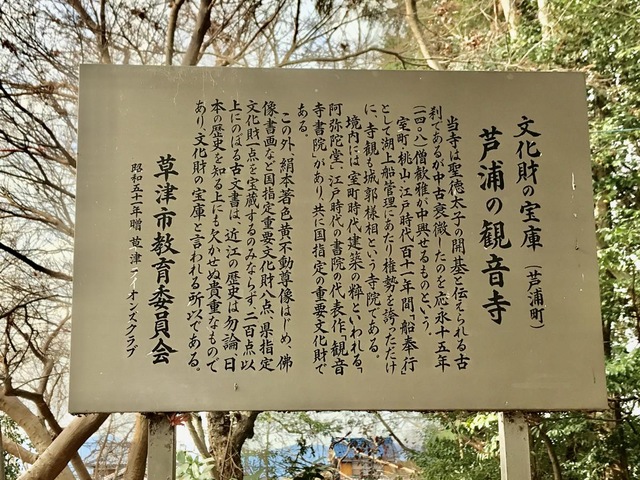 文化財の宝庫(芦浦町)
芦浦の観音寺
当寺は聖徳太子の開基と伝えられる古
刹であるが中古衰微したのを応永十五年
(一四〇八)僧歓雅が中興せるものという。
室町、桃山、江戸時代百十一年間、「船奉行」
として湖上船管理にあたり権勢を誇っただけ
に、寺観も城郭様相という寺院である。
境内には「室町時代建築の粋」といわれる、
阿弥陀堂、「江戸時代の書院の代表作」観音
寺書院があり、共に国指定の重要文化財で
ある。
この外、絹本著色黄不動尊像はじめ、佛
像書画など国指定重要文化財八点、県指定
文化財一点を宝蔵するのみならず、二百点以
上にのぼる古文書は、近江の歴史は勿論、日
本の歴史を知る上にも欠かせぬ貴重なもので
あり、文化財の宝庫と言われる所以である。
草津市教育委員会
昭和五十一年贈 草津ライオンズクラブ